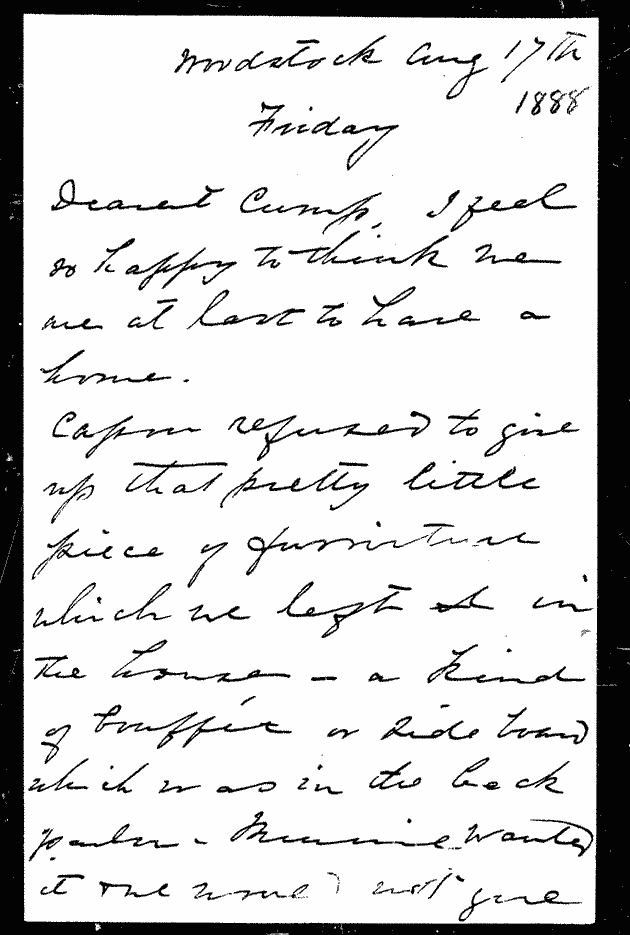 Woodstock Aug 17th
1888
Friday
Dearest Cump, I feel
so happy to think we
are at last to have a
home.
refused to give
up that pretty little
piece of furniture
which we left in
the house - a kind
of bouffée or side board
which was in the back
parlor - Minnie wanted
it and would not give